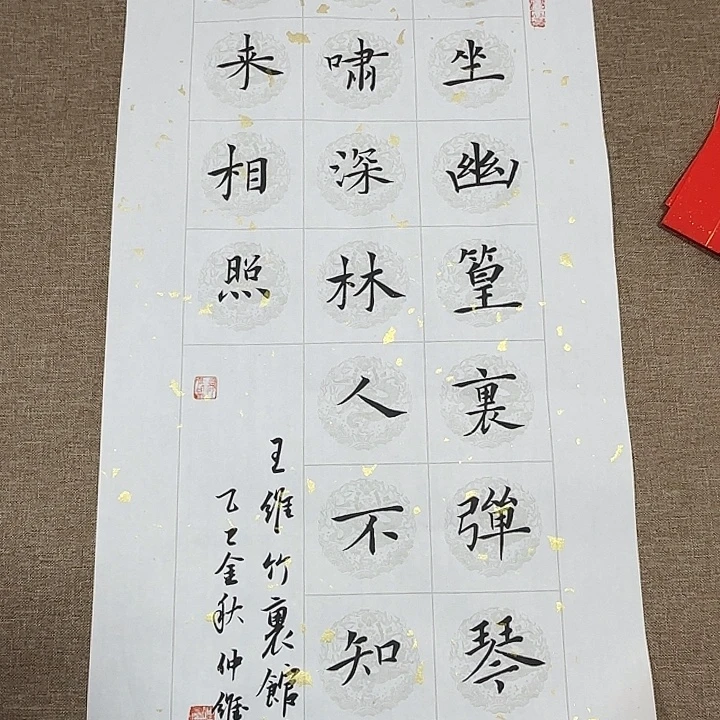 坐幽篁裏彈琴
嘯深林人不知
来相照
王維竹裏館
乙巳金秋仲維